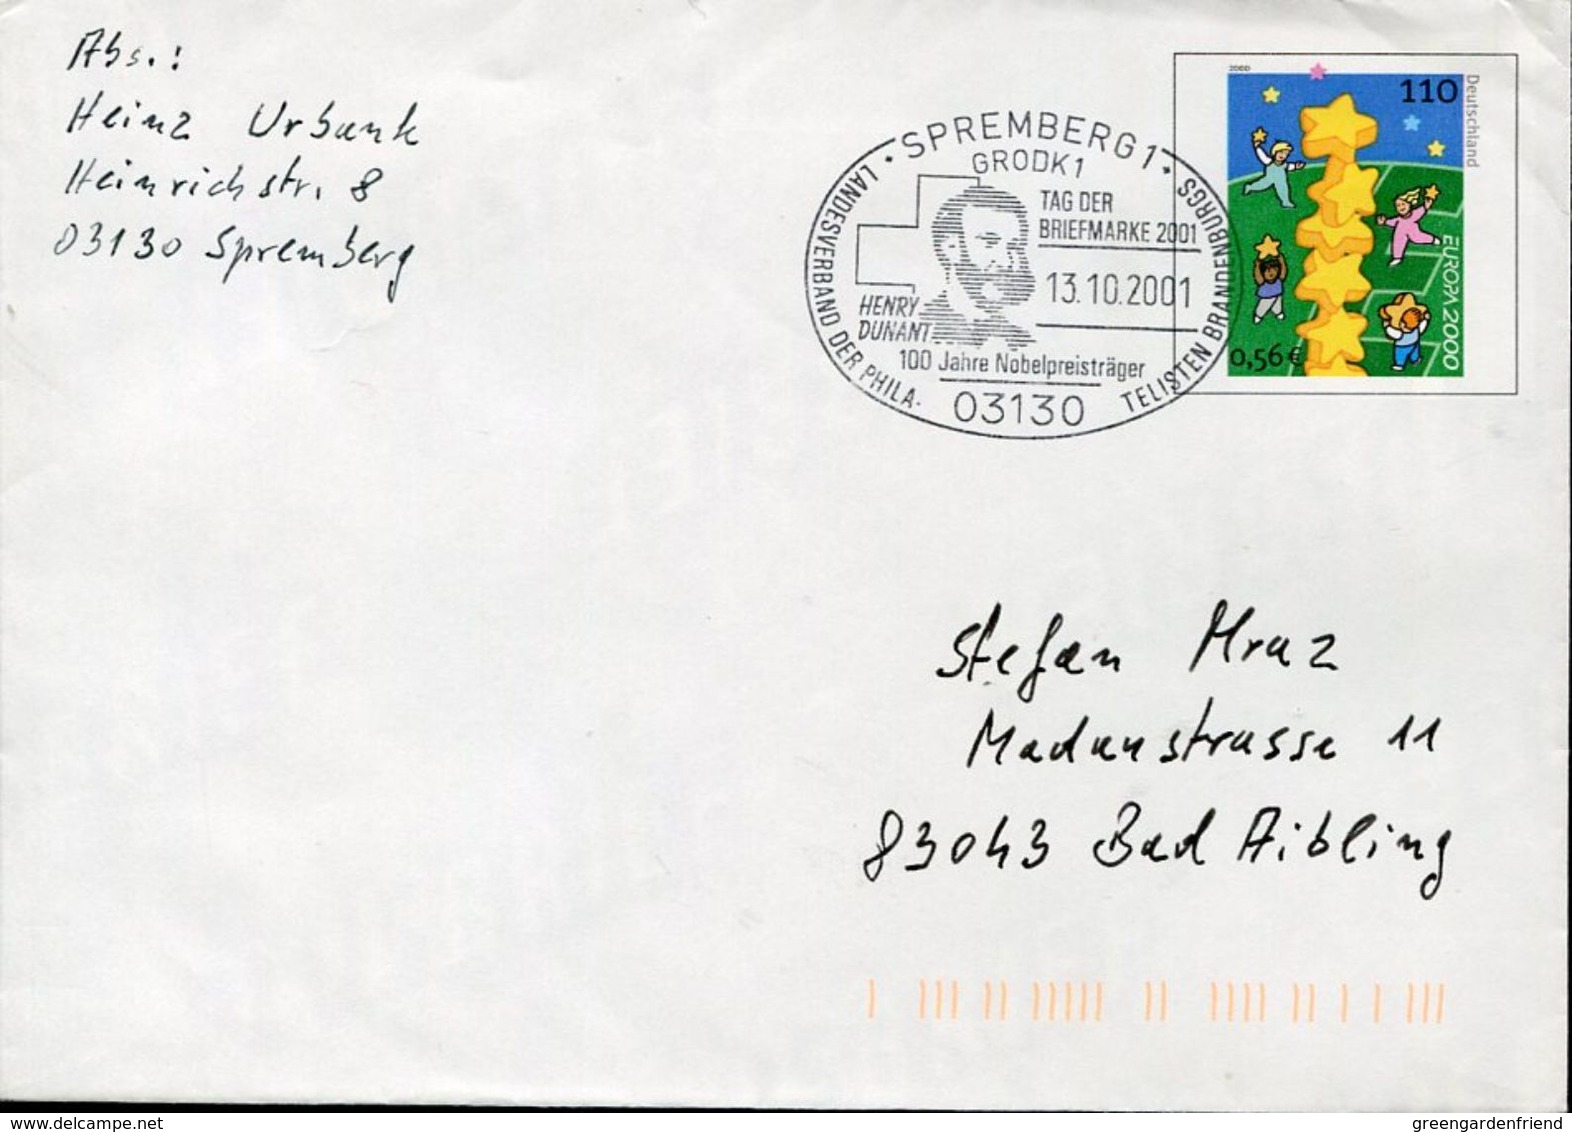 Abs.:
Heinz Urbank
Heinrichstr. 8
03130 Spremberg
• SPREMBERG 1 •
GRODK 1
LANDESVERBAND DER PHILA-
TELISTEN BRANDENBURGS
TAG DER
BRIEFMARKE 2001
13.10.2001
HENRY
DUNANT
100 Jahre Nobelpreisträger
03130
2000
110
Deutschland
EUROPA 2000
0,56 €
Stefan Mraz
Madaustrasse 11
83043 Bad Aibling
www.delcampe.net
greengardenfriend